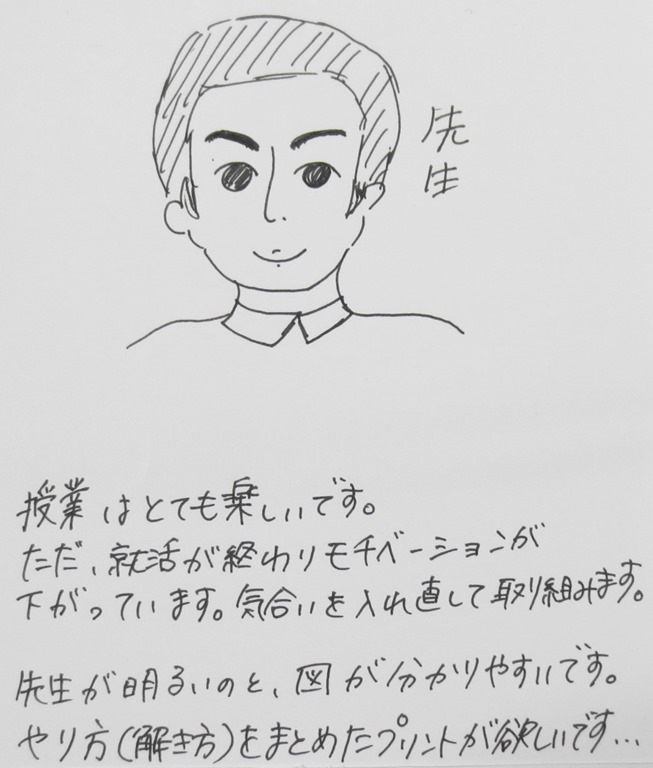 先生
授業はとても楽しいです。
ただ、就活が終わりモチベーションが
下がっています。気合いを入れ直して取り組みます。
先生が明るいのと、図が分かりやすいです。
やり方(解き方)をまとめたプリントが欲しいです...